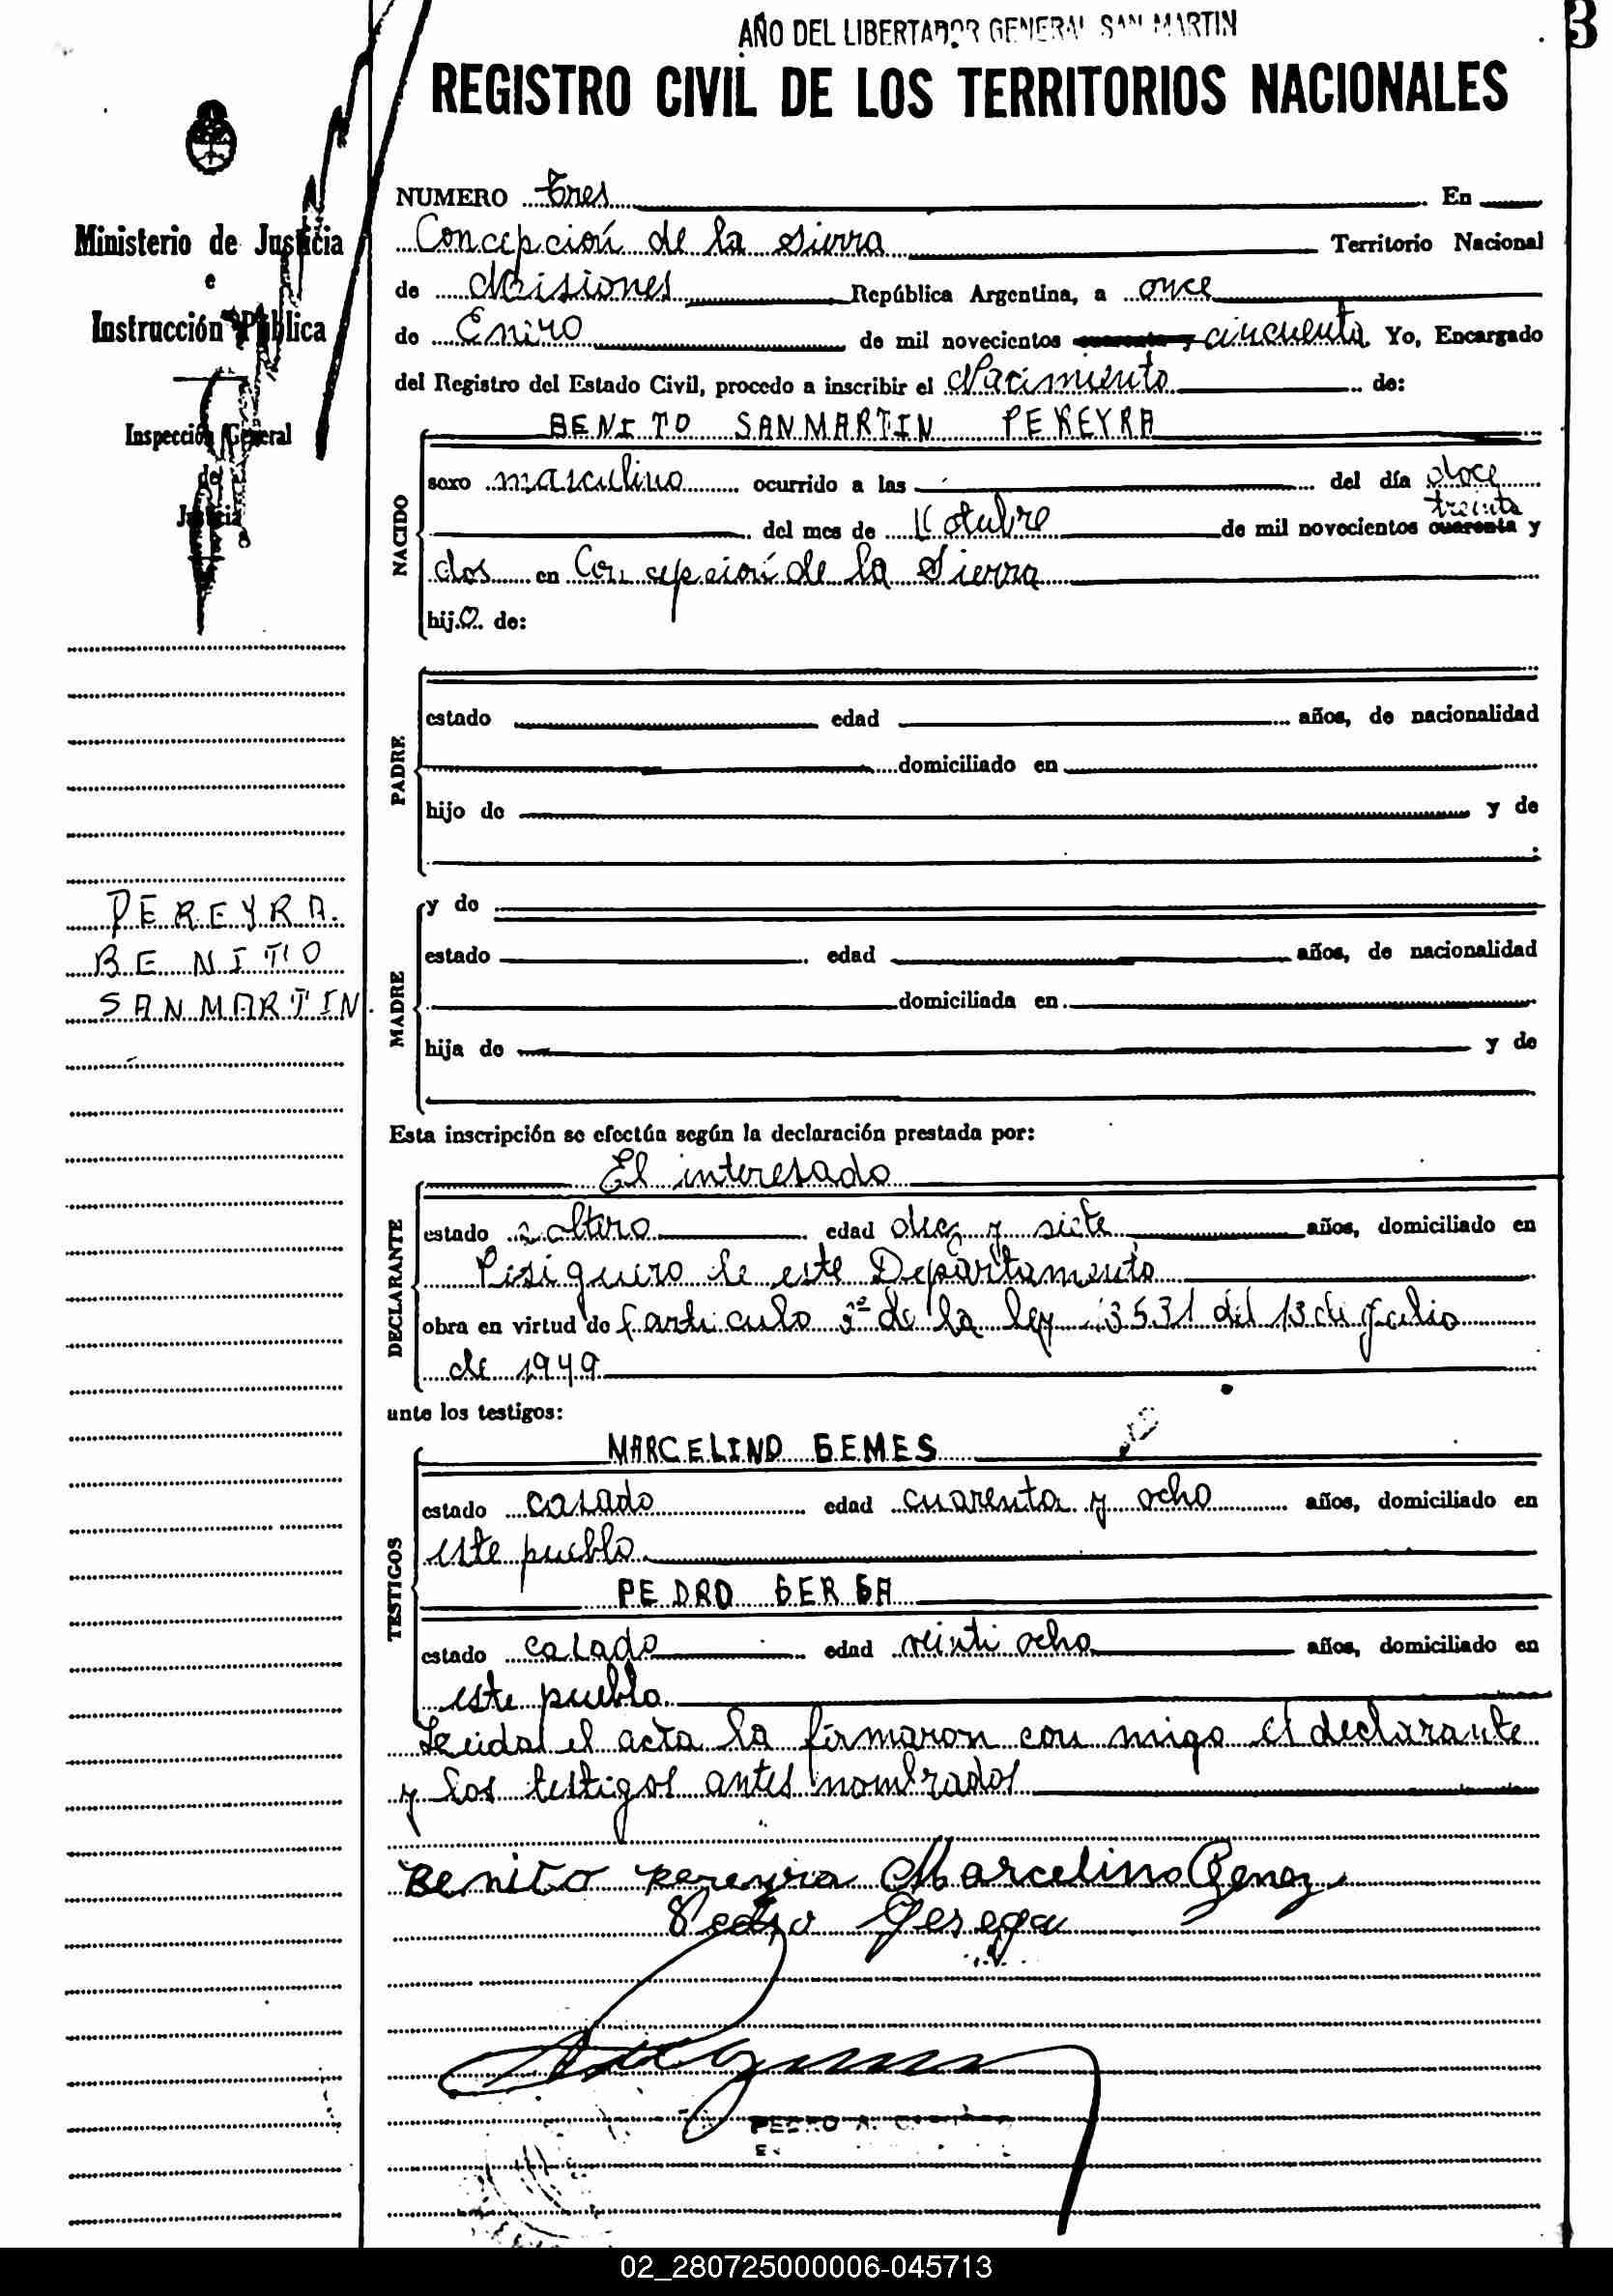 AÑO DEL LIBERTADOR GENERAL SAN MARTIN
3
REGISTRO CIVIL DE LOS TERRITORIOS NACIONALES
Ministerio de Justicia
e
Instrucción Pública
Inspección General
de
Justicia
NUMERO tres En
Concepción de la sierra Territorio Nacional
de Misiones República Argentina, a once
de Enero de mil novecientos cuarenta y cincuenta Yo, Encargado
del Registro del Estado Civil, procedo a inscribir el Nacimiento de:
BENITO SANMARTIN PEREYRA
NACIDO
sexo masculino ocurrido a las del día doce
treinta
del mes de Octubre de mil novecientos cuarenta y
dos en Concepción de la Sierra
hijo de:
PADRE
estado edad años, de nacionalidad
domiciliado en
hijo de y de
PEREYRA
BENITO
SANMARTIN
MADRE
y de
estado edad años, de nacionalidad
domiciliada en
hija de y de
Esta inscripción se efectúa según la declaración prestada por:
DECLARANTE
El interesado
estado soltero edad diez y siete años, domiciliado en
de este Departamento
obra en virtud de articulo de la ley 13531 del 13 de Julio
de 1949
ante los testigos:
TESTIGOS
MARCELINO GEMES
estado casado edad cuarenta y ocho años, domiciliado en
este pueblo
PEDRO GERGA
estado casado edad veinti ocho años, domiciliado en
este pueblo
Leida el acta la firmaron con migo el declarante
y los testigos antes nombrados
Benito pereyra Marcelino Genez
Pedro Gerega
PEDRO A.
02_280725000006-045713